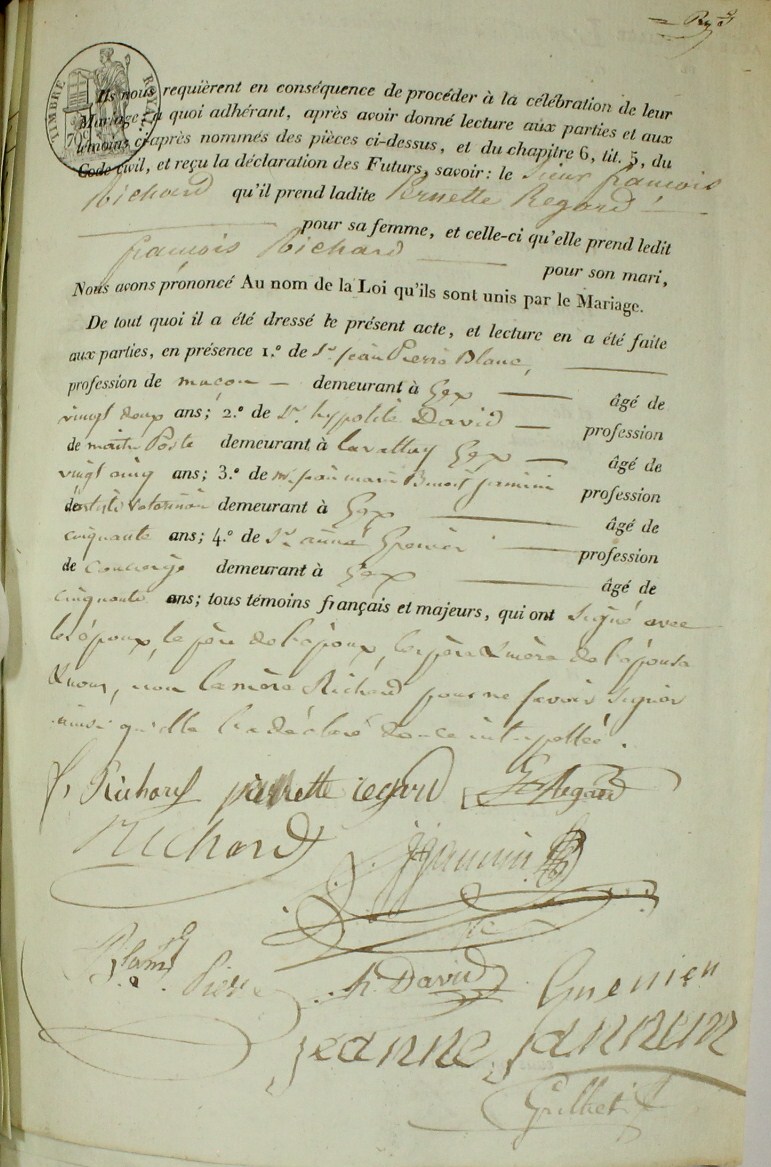 TIMBRE ROYAL
70 C
Ils nous requièrent en conséquence de procéder à la célébration de leur
Mariage; à quoi adhérant, après avoir donné lecture aux parties et aux
témoins ci-après nommés des pièces ci-dessus, et du chapitre 6, tit. 5, du
Code civil, et reçu la déclaration des Futurs, savoir: le Sieur françois
Richard qu'il prend ladite Pernette Regard
pour sa femme, et celle-ci qu'elle prend ledit
françois Richard pour son mari,
Nous avons prononcé Au nom de la Loi qu'ils sont unis par le Mariage.
De tout quoi il a été dressé le présent acte, et lecture en a été faite
aux parties, en présence 1.º de Sr. jean Pierre Blanc,
profession de maçon — demeurant à Gex — âgé de
vingt deux ans; 2.º de Sr. hypolite David — profession
de maitre Poste demeurant à Lavattay Gex — âgé de
vingt cinq ans; 3.º de mr. jean marie Benoit jannin profession
de artiste vétérinaire demeurant à Gex — âgé de
cinquante ans; 4.º de Sr. aimé Grenier — profession
de concierge demeurant à Gex — âgé de
cinquante ans; tous témoins français et majeurs, qui ont signé avec
les époux, le père de l'époux, les père & mère de l'épouse
& nous, non la mère Richard pour ne savoir signer
ainsi qu'elle l'a déclaré de ce interpellée.
f. Richard pernette regard Regard
Richard jannin
Blanc Pierre h. David Grenier
jeanne jannin